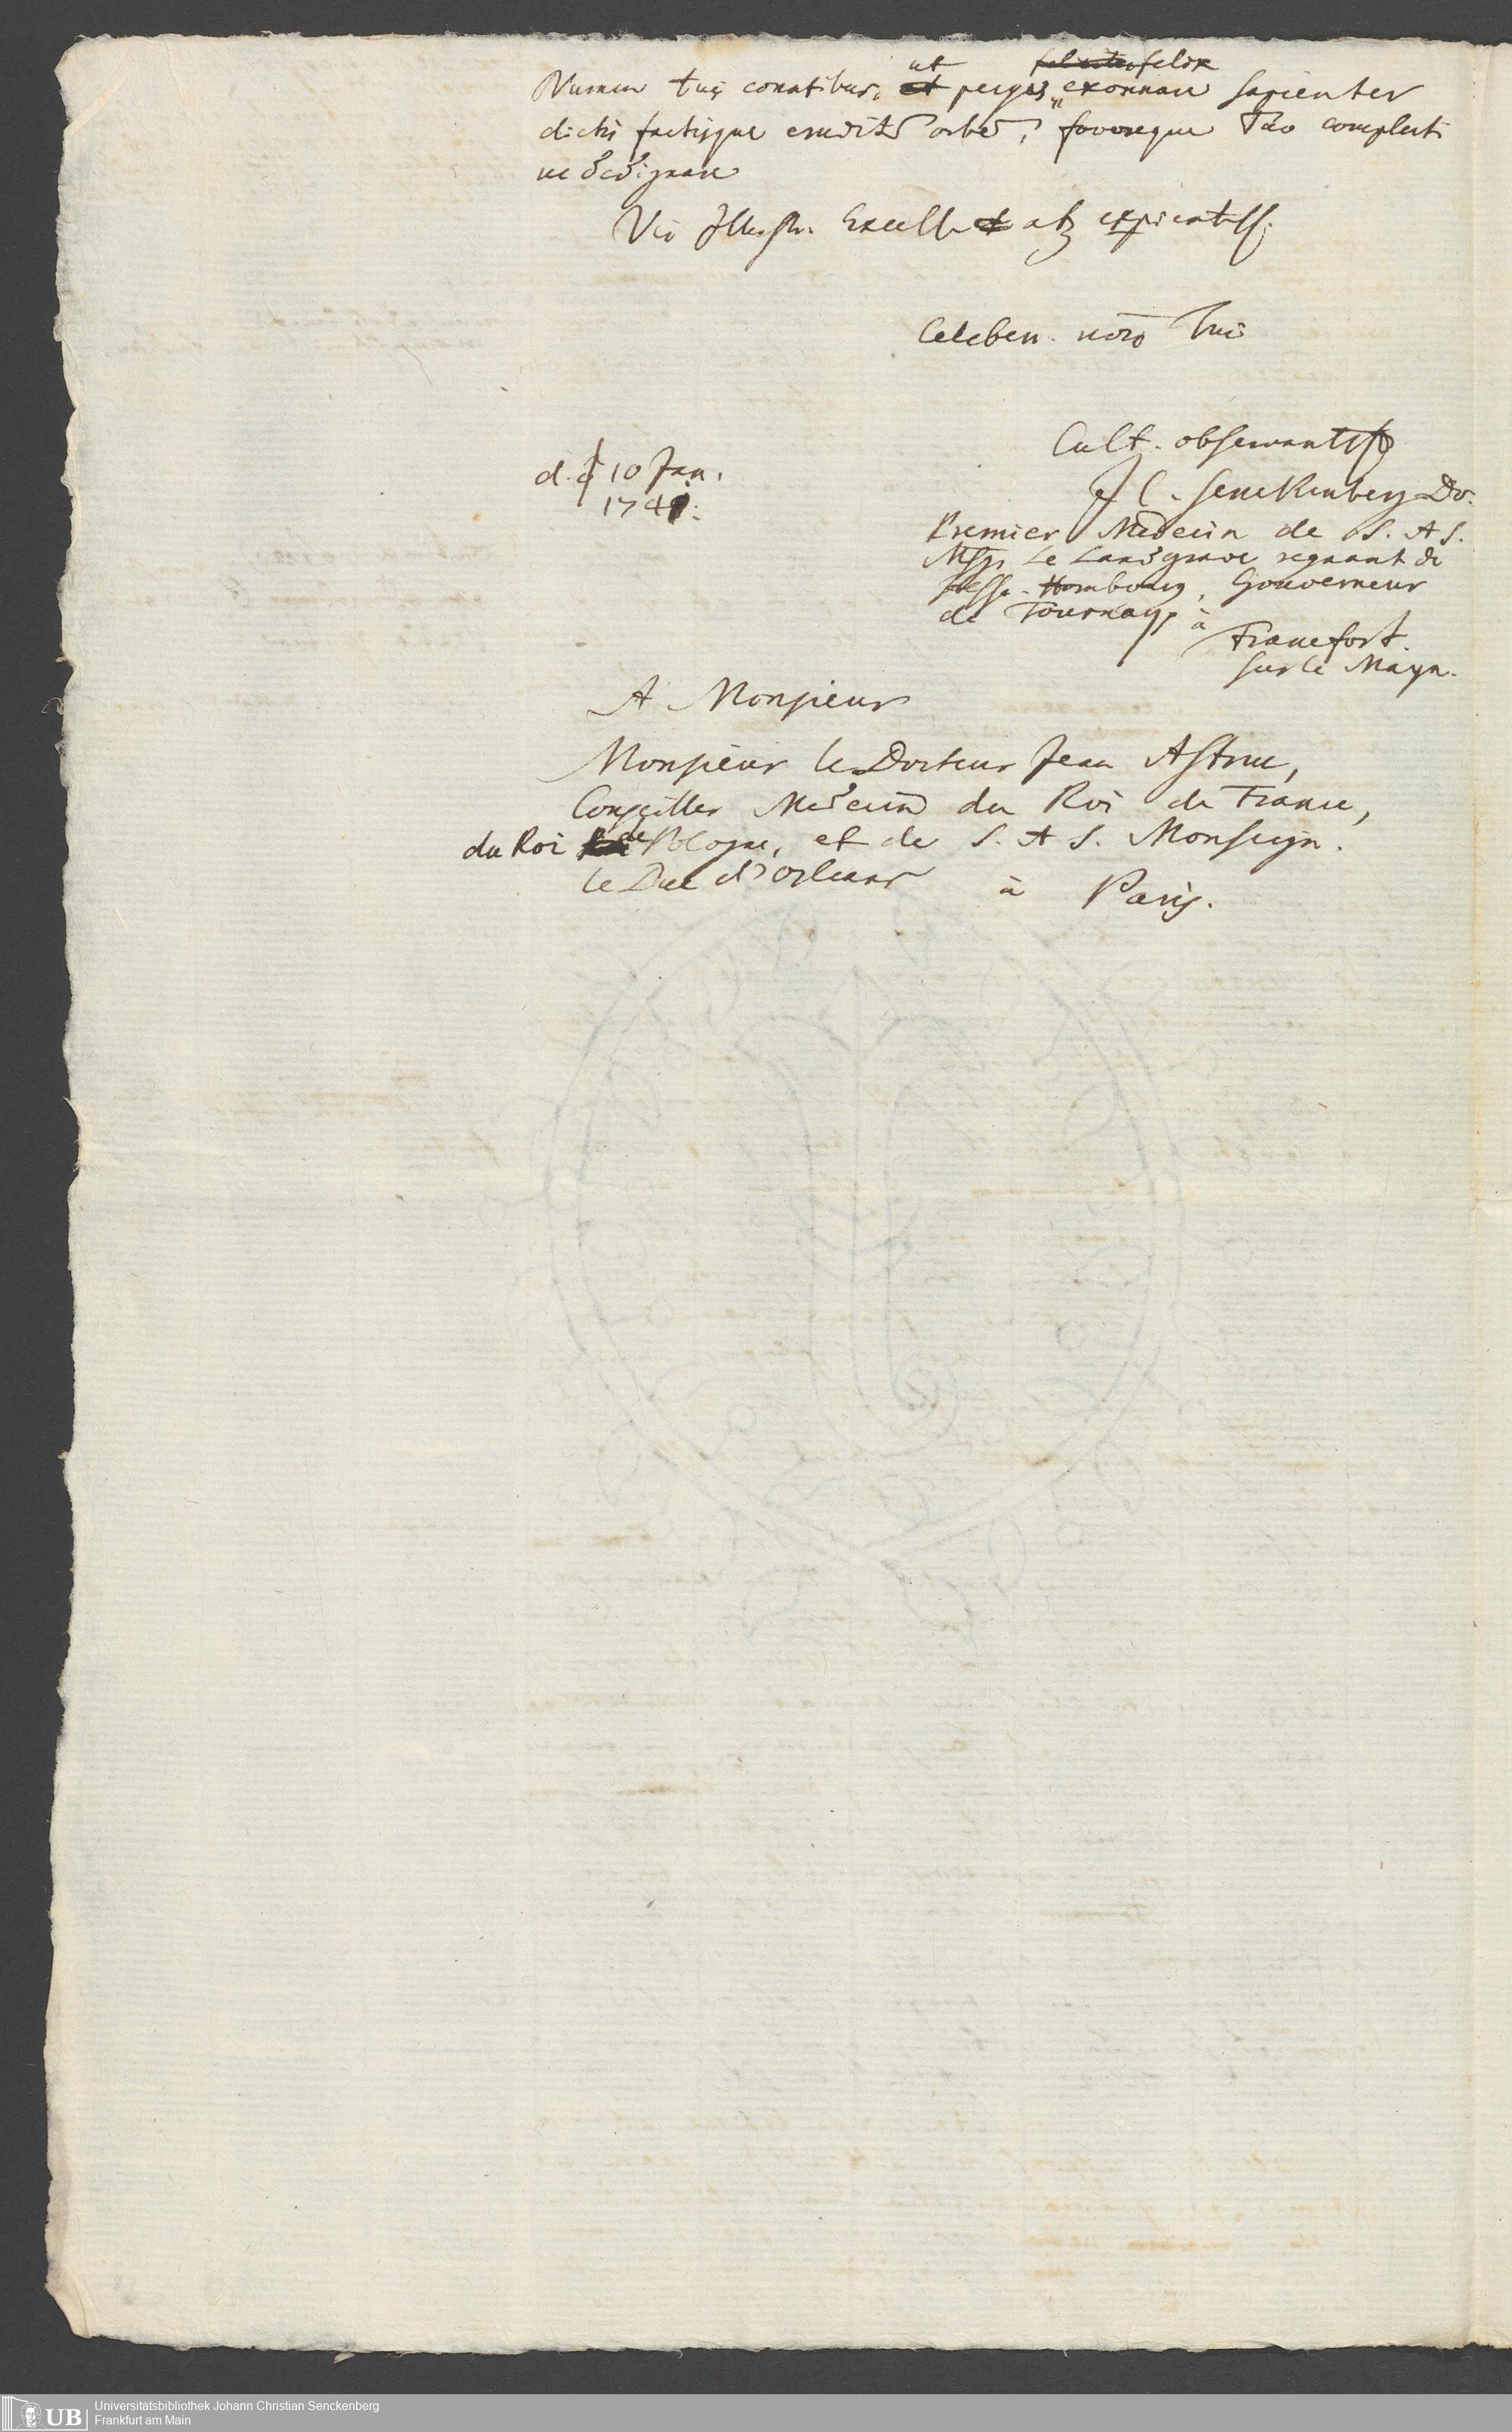 ut felix
Numen tuis conatibus, et perges exornare sapienter
dictis factisque eruditū orbē, favoreque Tuo complecti
ne dedignare
Vir Illustr. Excell. et atq experientiss.
Celeberr. nōis Tui
Cult. observantiss
d. 10 Jan.
1741.
J C. Senckenberg Dr.
Premier Medecin de S. A S.
Msgr Le Landgrave regnant de
Hesse-Hombourg, Gouverneur
de Tournay, à
Francfort
sur le Mayn.
A Monsieur
Monsieur le Docteur Jean Astruc,
Conseiller Medecin du Roi de France,
du Roi de Pologne, et de S. A S. Monseign.
le Duc d'Orleans à Paris.
Universitätsbibliothek Johann Christian Senckenberg
Frankfurt am Main
UB